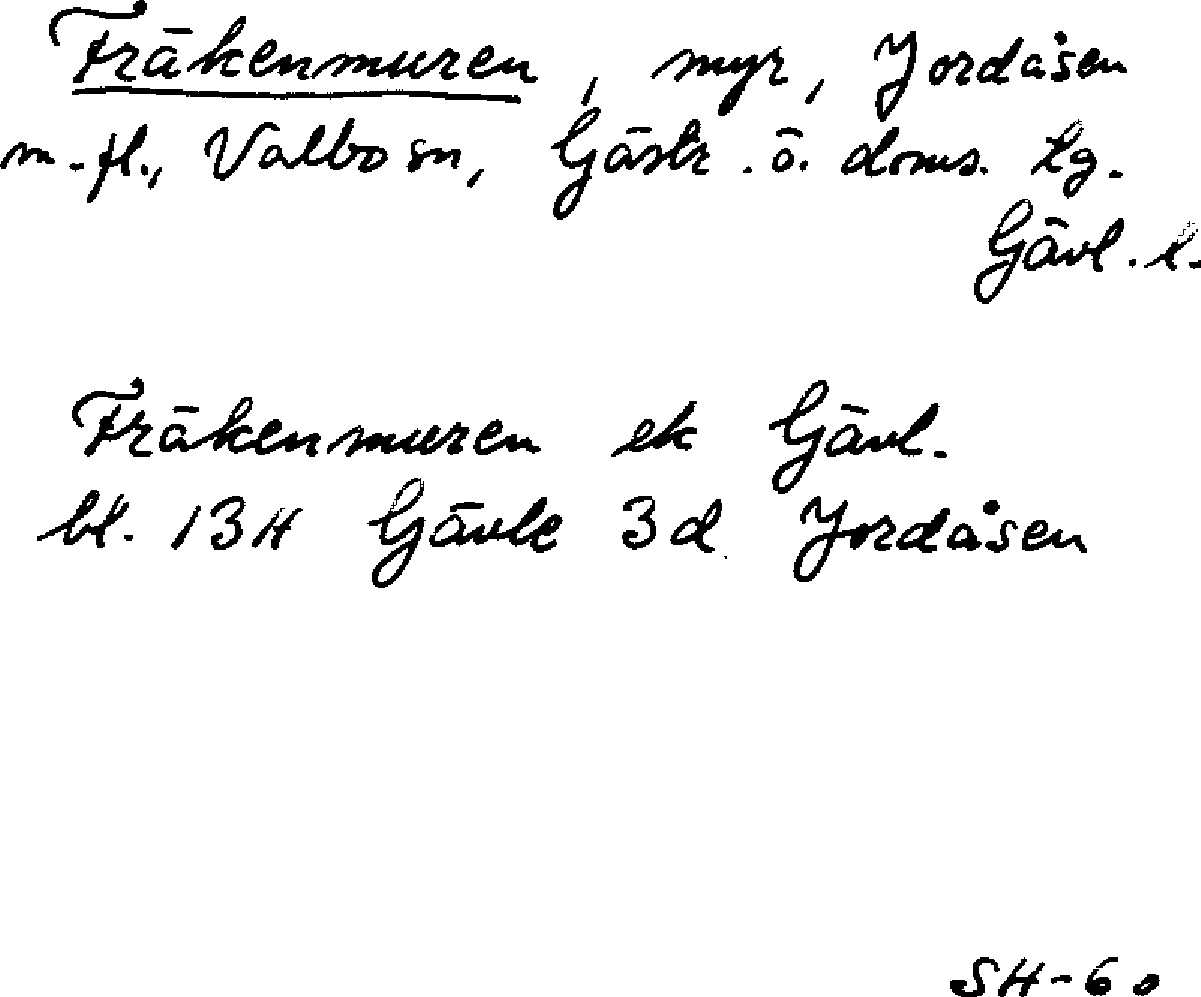 Fräkenmuren, myr, Jordåsen
m. fl., Valbo sn, Gästr. ö. doms. tg.
Gävl. l.
Fräkenmuren ek Gävl.
bl. 13H Gävle 3d Jordåsen
SH-60